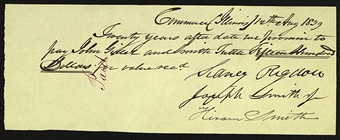 Commerce Illinois 12th Aug 1839
Twenty years after date we promise to
pay John Gillet and Smith Tuttle Fifteen Hundred
Dollars for value recd
Sidney Rigdon
Joseph Smith Jr
Hiram Smith
Paid